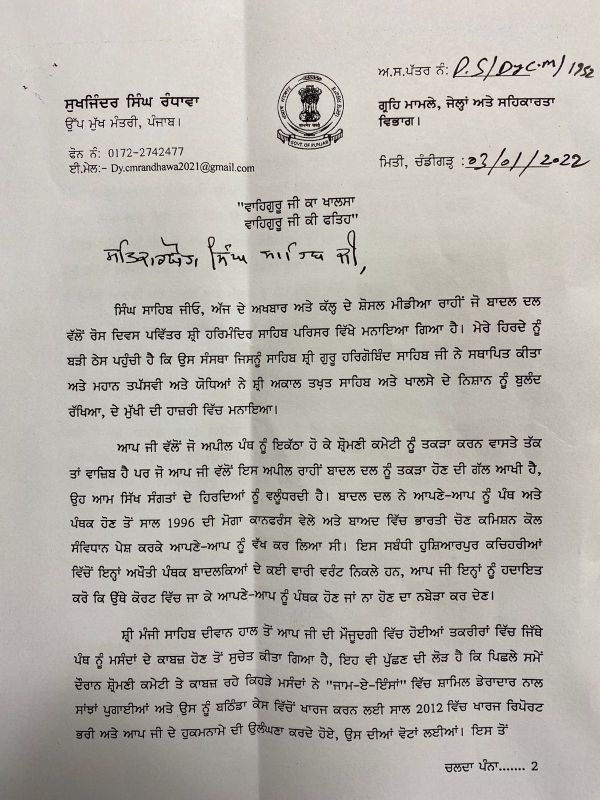 ਅ.ਸ.ਪੱਤਰ ਨੰ: D.S/Dy C.M/1952
ਸੁਖਜਿੰਦਰ ਸਿੰਘ ਰੰਧਾਵਾ
ਉੱਪ ਮੁੱਖ ਮੰਤਰੀ, ਪੰਜਾਬ।
ਫੋਨ ਨੰ: 0172-2742477
ਈ.ਮੇਲ:- Dy.cmrandhawa2021@gmail.com
GOVT. OF PUNJAB
ਗ੍ਰਹਿ ਮਾਮਲੇ, ਜੇਲ੍ਹਾਂ ਅਤੇ ਸਹਿਕਾਰਤਾ
ਵਿਭਾਗ।
ਮਿਤੀ, ਚੰਡੀਗੜ੍ਹ : 03/01/2022
"ਵਾਹਿਗੁਰੂ ਜੀ ਕਾ ਖਾਲਸਾ
ਵਾਹਿਗੁਰੂ ਜੀ ਕੀ ਫਤਿਹ"
ਸਤਿਕਾਰਯੋਗ ਸਿੰਘ ਸਾਹਿਬ ਜੀ,
ਸਿੰਘ ਸਾਹਿਬ ਜੀਓ, ਅੱਜ ਦੇ ਅਖਬਾਰ ਅਤੇ ਕੱਲ੍ਹ ਦੇ ਸ਼ੋਸਲ ਮੀਡੀਆ ਰਾਹੀਂ ਜੋ ਬਾਦਲ ਦਲ
ਵੱਲੋਂ ਰੋਸ ਦਿਵਸ ਪਵਿੱਤਰ ਸ਼੍ਰੀ ਹਰਿਮੰਦਿਰ ਸਾਹਿਬ ਪਰਿਸਰ ਵਿੱਖੇ ਮਨਾਇਆ ਗਿਆ ਹੈ। ਮੇਰੇ ਹਿਰਦੇ ਨੂੰ
ਬੜੀ ਠੇਸ ਪਹੁੰਚੀ ਹੈ ਕਿ ਉਸ ਸੰਸਥਾ ਜਿਸਨੂੰ ਸਾਹਿਬ ਸ਼੍ਰੀ ਗੁਰੂ ਹਰਿਗੋਬਿੰਦ ਸਾਹਿਬ ਜੀ ਨੇ ਸਥਾਪਿਤ ਕੀਤਾ
ਅਤੇ ਮਹਾਨ ਤਪੱਸਵੀ ਅਤੇ ਯੋਧਿਆਂ ਨੇ ਸ਼੍ਰੀ ਅਕਾਲ ਤਖ਼ਤ ਸਾਹਿਬ ਅਤੇ ਖਾਲਸੇ ਦੇ ਨਿਸ਼ਾਨ ਨੂੰ ਬੁਲੰਦ
ਰੱਖਿਆ, ਦੇ ਮੁੱਖੀ ਦੀ ਹਾਜ਼ਰੀ ਵਿੱਚ ਮਨਾਇਆ।
ਆਪ ਜੀ ਵੱਲੋਂ ਜੋ ਅਪੀਲ ਪੰਥ ਨੂੰ ਇਕੱਠਾ ਹੋ ਕੇ ਸ਼੍ਰੋਮਣੀ ਕਮੇਟੀ ਨੂੰ ਤਕੜਾ ਕਰਨ ਵਾਸਤੇ ਤੱਕ
ਤਾਂ ਵਾਜ਼ਿਬ ਹੈ ਪਰ ਜੋ ਆਪ ਜੀ ਵੱਲੋਂ ਇਸ ਅਪੀਲ ਰਾਹੀਂ ਬਾਦਲ ਦਲ ਨੂੰ ਤਕੜਾ ਹੋਣ ਦੀ ਗੱਲ ਆਖੀ ਹੈ,
ਉਹ ਆਮ ਸਿੱਖ ਸੰਗਤਾਂ ਦੇ ਹਿਰਦਿਆਂ ਨੂੰ ਵਲੂੰਧਰਦੀ ਹੈ। ਬਾਦਲ ਦਲ ਨੇ ਆਪਣੇ-ਆਪ ਨੂੰ ਪੰਥ ਅਤੇ
ਪੰਥਕ ਹੋਣ ਤੋਂ ਸਾਲ 1996 ਦੀ ਮੋਗਾ ਕਾਨਫਰੰਸ ਵੇਲੇ ਅਤੇ ਬਾਅਦ ਵਿੱਚ ਭਾਰਤੀ ਚੋਣ ਕਮਿਸ਼ਨ ਕੋਲ
ਸੰਵਿਧਾਨ ਪੇਸ਼ ਕਰਕੇ ਆਪਣੇ-ਆਪ ਨੂੰ ਵੱਖ ਕਰ ਲਿਆ ਸੀ। ਇਸ ਸਬੰਧੀ ਹੁਸ਼ਿਆਰਪੁਰ ਕਚਿਹਰੀਆਂ
ਵਿੱਚੋਂ ਇਨ੍ਹਾਂ ਅਖੌਤੀ ਪੰਥਕ ਬਾਦਲਕਿਆਂ ਦੇ ਕਈ ਵਾਰੀ ਵਰੰਟ ਨਿਕਲੇ ਹਨ, ਆਪ ਜੀ ਇਨ੍ਹਾਂ ਨੂੰ ਹਦਾਇਤ
ਕਰੋ ਕਿ ਉੱਥੇ ਕੋਰਟ ਵਿੱਚ ਜਾ ਕੇ ਆਪਣੇ-ਆਪ ਨੂੰ ਪੰਥਕ ਹੋਣ ਜਾਂ ਨਾ ਹੋਣ ਦਾ ਨਬੇੜਾ ਕਰ ਦੇਣ।
ਸ਼੍ਰੀ ਮੰਜੀ ਸਾਹਿਬ ਦੀਵਾਨ ਹਾਲ ਤੋਂ ਆਪ ਜੀ ਦੀ ਮੌਜੂਦਗੀ ਵਿੱਚ ਹੋਈਆਂ ਤਕਰੀਰਾਂ ਵਿੱਚ ਜਿੱਥੇ
ਪੰਥ ਨੂੰ ਮਸੰਦਾਂ ਦੇ ਕਾਬਜ਼ ਹੋਣ ਤੋਂ ਸੁਚੇਤ ਕੀਤਾ ਗਿਆ ਹੈ, ਇਹ ਵੀ ਪੁੱਛਣ ਦੀ ਲੋੜ ਹੈ ਕਿ ਪਿਛਲੇ ਸਮੇਂ
ਦੌਰਾਨ ਸ਼੍ਰੋਮਣੀ ਕਮੇਟੀ ਤੇ ਕਾਬਜ਼ ਰਹੇ ਕਿਹੜੇ ਮਸੰਦਾਂ ਨੇ "ਜਾਮ-ਏ-ਇੰਸਾਂ" ਵਿੱਚ ਸ਼ਾਮਿਲ ਡੇਰਾਦਾਰ ਨਾਲ
ਸਾਂਝਾਂ ਪੁਗਾਈਆਂ ਅਤੇ ਉਸ ਨੂੰ ਬਠਿੰਡਾ ਕੇਸ ਵਿੱਚੋਂ ਖਾਰਜ ਕਰਨ ਲਈ ਸਾਲ 2012 ਵਿੱਚ ਖਾਰਜ ਰਿਪੋਰਟ
ਭਰੀ ਅਤੇ ਆਪ ਜੀ ਦੇ ਹੁਕਮਨਾਮੇ ਦੀ ਉਲੰਘਣਾ ਕਰਦੇ ਹੋਏ, ਉਸ ਦੀਆਂ ਵੋਟਾਂ ਲਈਆਂ। ਇਸ ਤੋਂ
ਚਲਦਾ ਪੰਨਾ....... 2